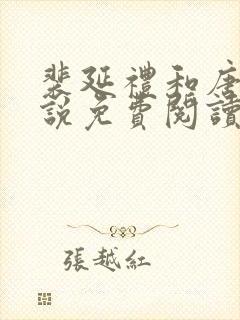 裴延禮和唐
說免費閱讀
張越紅